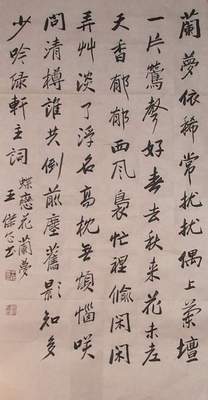 蘭夢依稀常扰扰偶上蘭壇
一片鶯聲好春去秋来花未老
天香郁郁西风裊忙裡偷闲闲
弄艸淡了浮名高枕無煩惱咲
問清樽誰共倒前塵舊影知多
少吟绿軒主詞 蝶恋花蘭夢
王